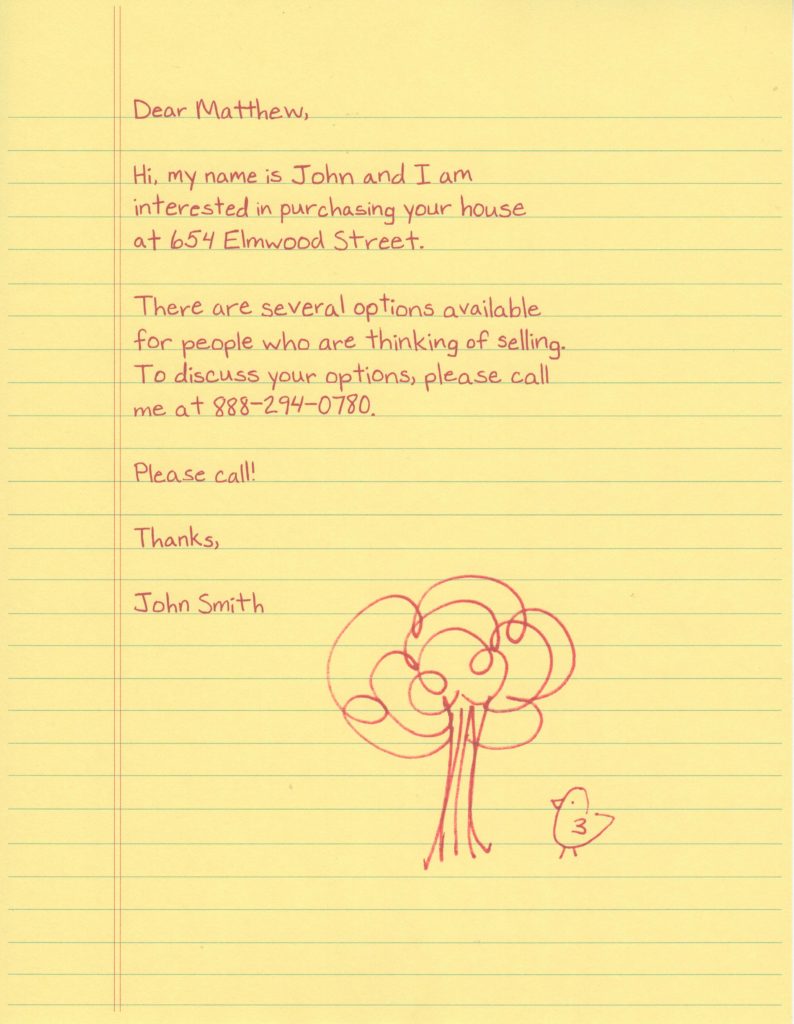 Dear Matthew,
Hi, my name is John and I am
interested in purchasing your house
at 654 Elmwood Street.
There are several options available
for people who are thinking of selling.
To discuss your options, please call
me at 888-294-0780.
Please call!
Thanks,
John Smith
3